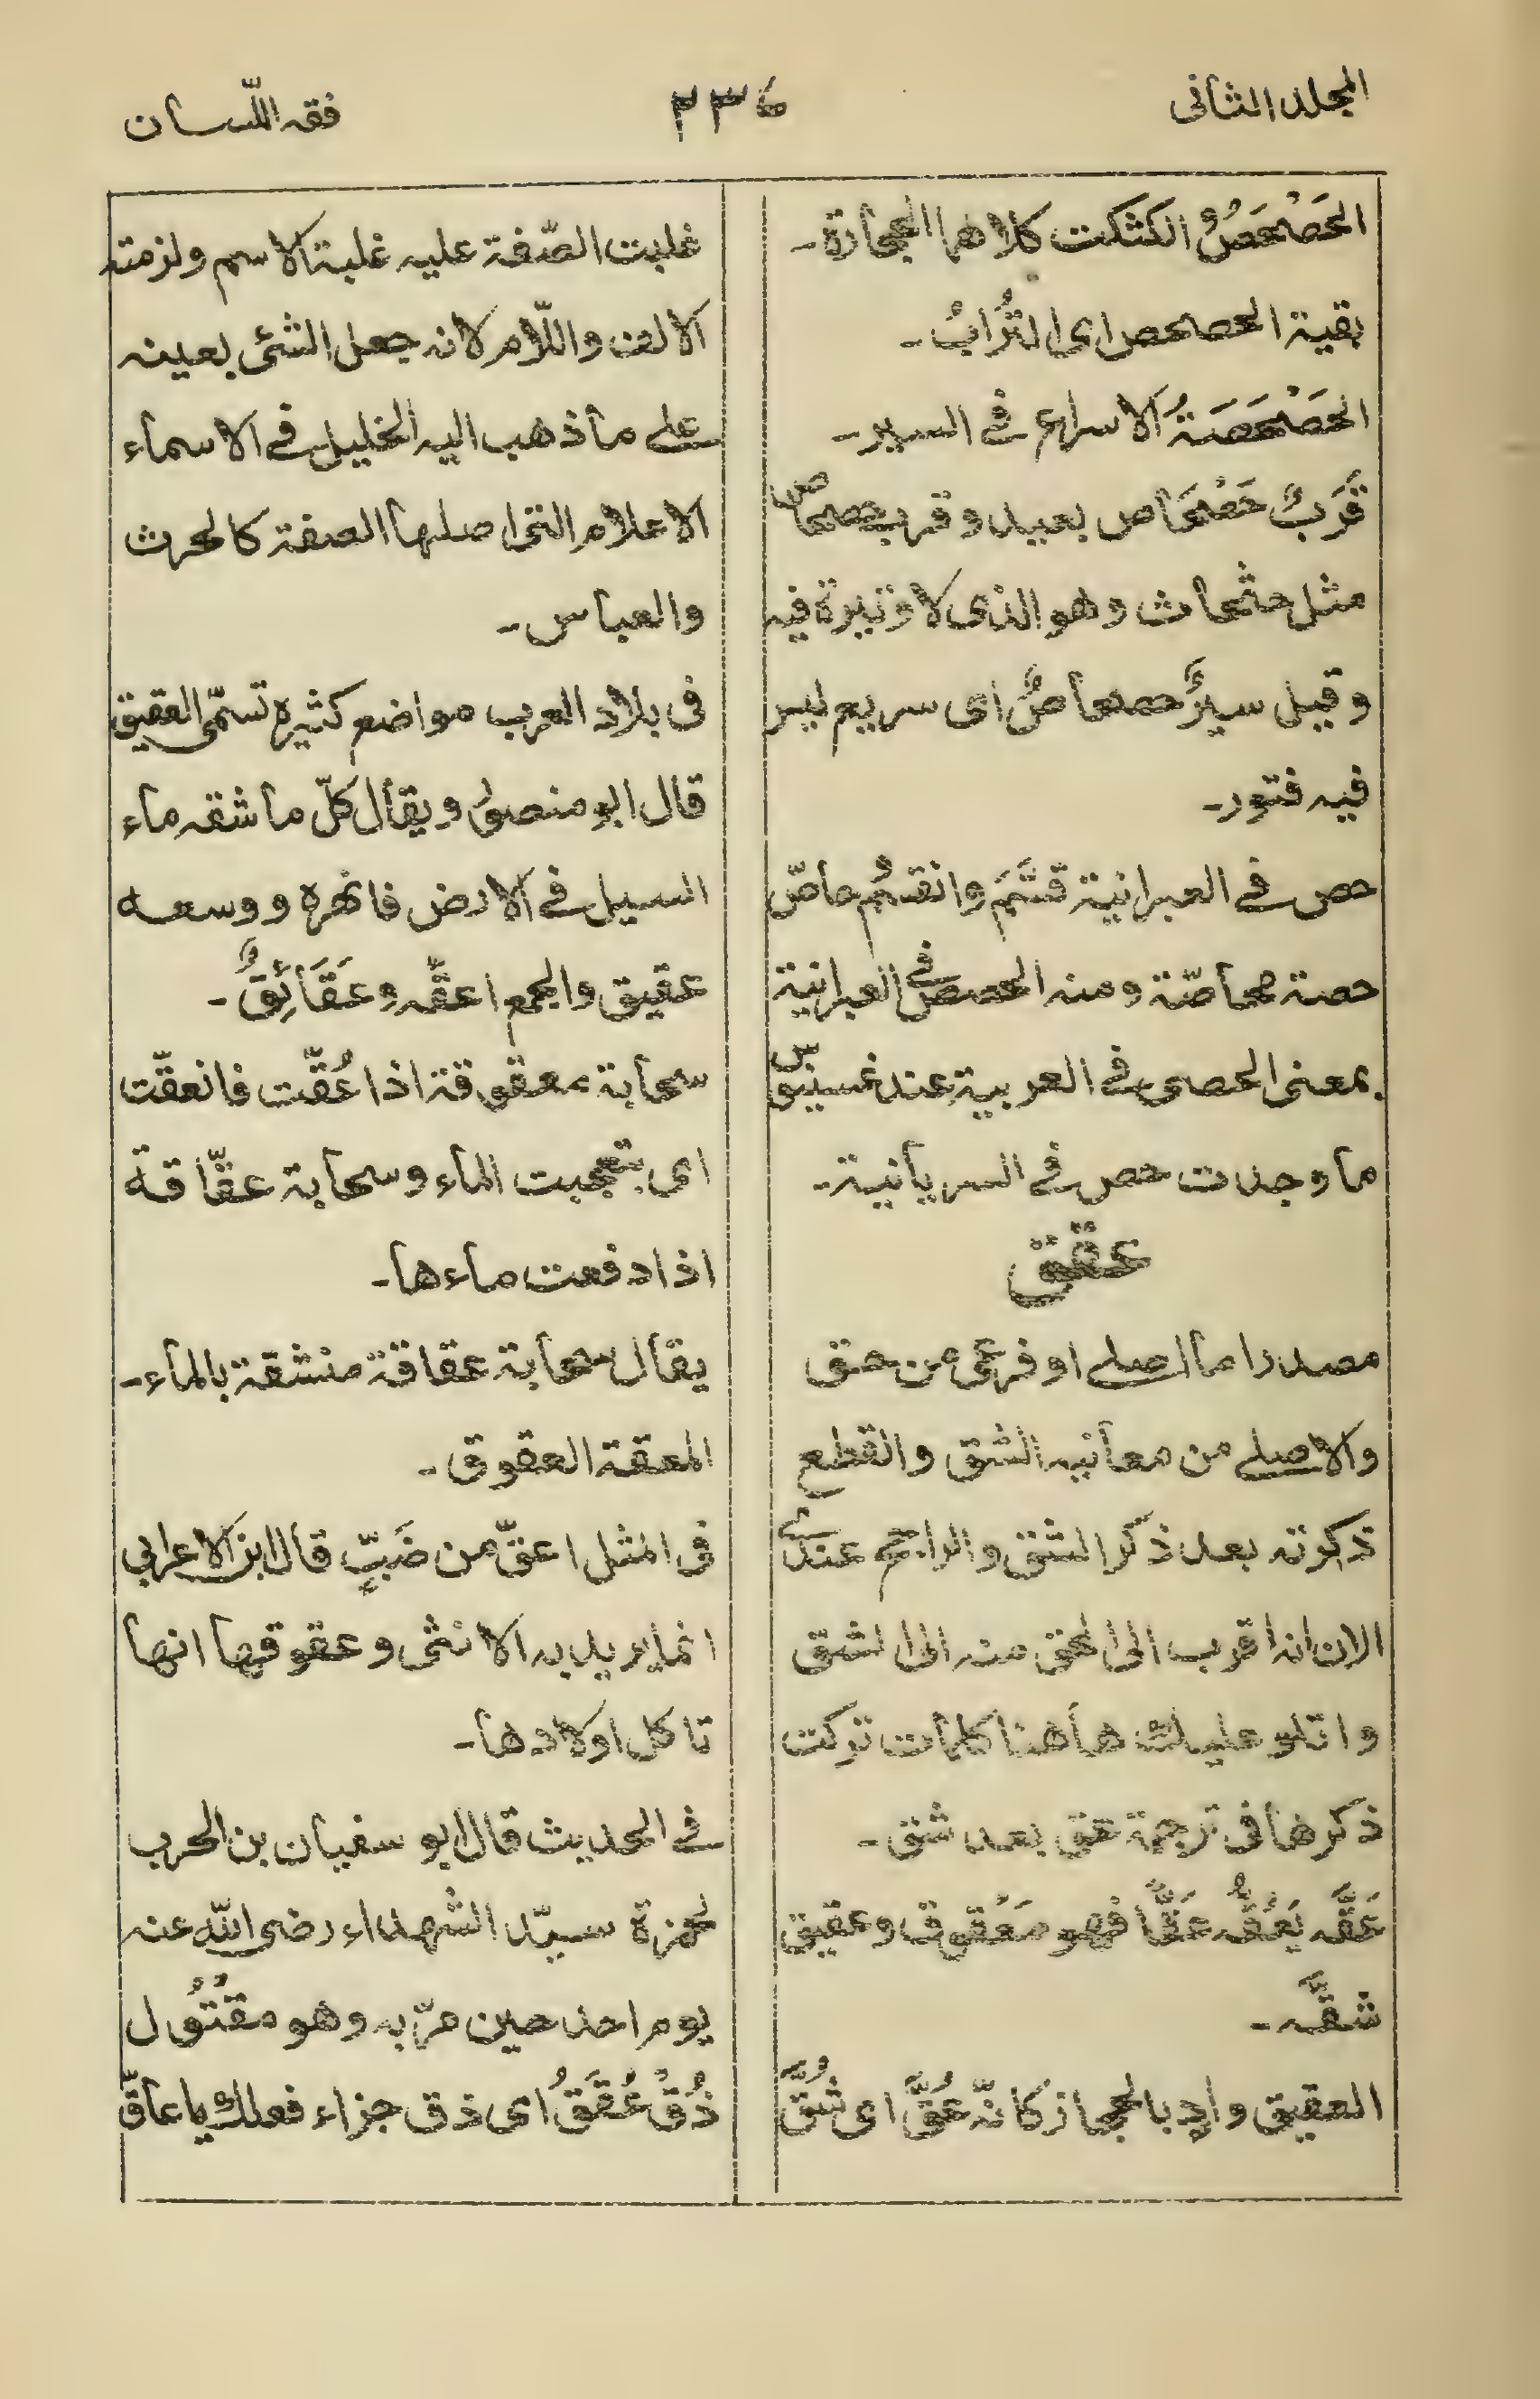 المجلد الثانی
٢٣٤
فقه اللّسان
الحَصْحَصُ الكثكث كلاهما الحجارة۔
بقية الحصحص ای التُرابُ۔
الحَصْحَصَةُ الاسراع فی السير۔
قَرَبٌ حَصْحَاص بعيد و قرب حصحاص
مثل حثحاث وهو الذی لا وتيرة فيه
وقيل سيرٌ حصحاصٌ ای سريع ليس
فيه فتور۔
حص فی العبرانية قسَّمَ وانقسم حاصّ
حصة محاصّة ومنه الحصص فی العبرانية
بمعنی الحصی فی العربية عند
ما وجدت حص فی السريانية۔
عقق
مصدر اما اصلی او فرعی من حق
والاصلی من معانيه الشق والقطع
ذكرته بعد ذكر الشق والراجح عندی
الان انه اقرب الی الحق منه الی الشق
واتلو عليك هاهنا كلمات تركت
ذكرها فی ترجمة عق بعد شق۔
عَقَّه يَعُقُّه عَقًّا فهو مَعْقوق وعقيق
شقَّه۔
العقيق واد بالحجاز كانّه عُقَّ ای شُقَّ
غلبت الصّفة عليه غلبة الاسم ولزمته
الالف واللّام لانه جعل الشئی بعينه
علی ما ذهب اليه الخليل فی الاسماء
الاعلام التی اصلها الصفة كالحرث
والعباس۔
فی بلاد العرب مواضع كثيرة تسمّی العقيق
قال ابو منصور ويقال كلّ ما شقه ماء
السيل فی الارض فانهره ووسعه
عقيق والجمع اعقَّه وعَقَائِقُ۔
سحابة معقوقة اذا عُقَّت فانعقّت
ای تبعجت الماء وسحابة عقَّاقة
اذا دفعت ماءها۔
يقال سحابة عقاقة منشقة بالماء۔
المعقة العقوق۔
فی المثل اعقّ من ضَبٍّ قال ابن الاعرابی
انما يريد به الانثی وعقوقها انها
تاكل اولادها۔
فی الحديث قال ابو سفيان بن الحرب
لحمزة سيّد الشهداء رضی الله عنه
يوم احد حين مرّ به وهو مقتُول
ذُقْ عُقَقُ ای ذق جزاء فعلك يا عاقّ